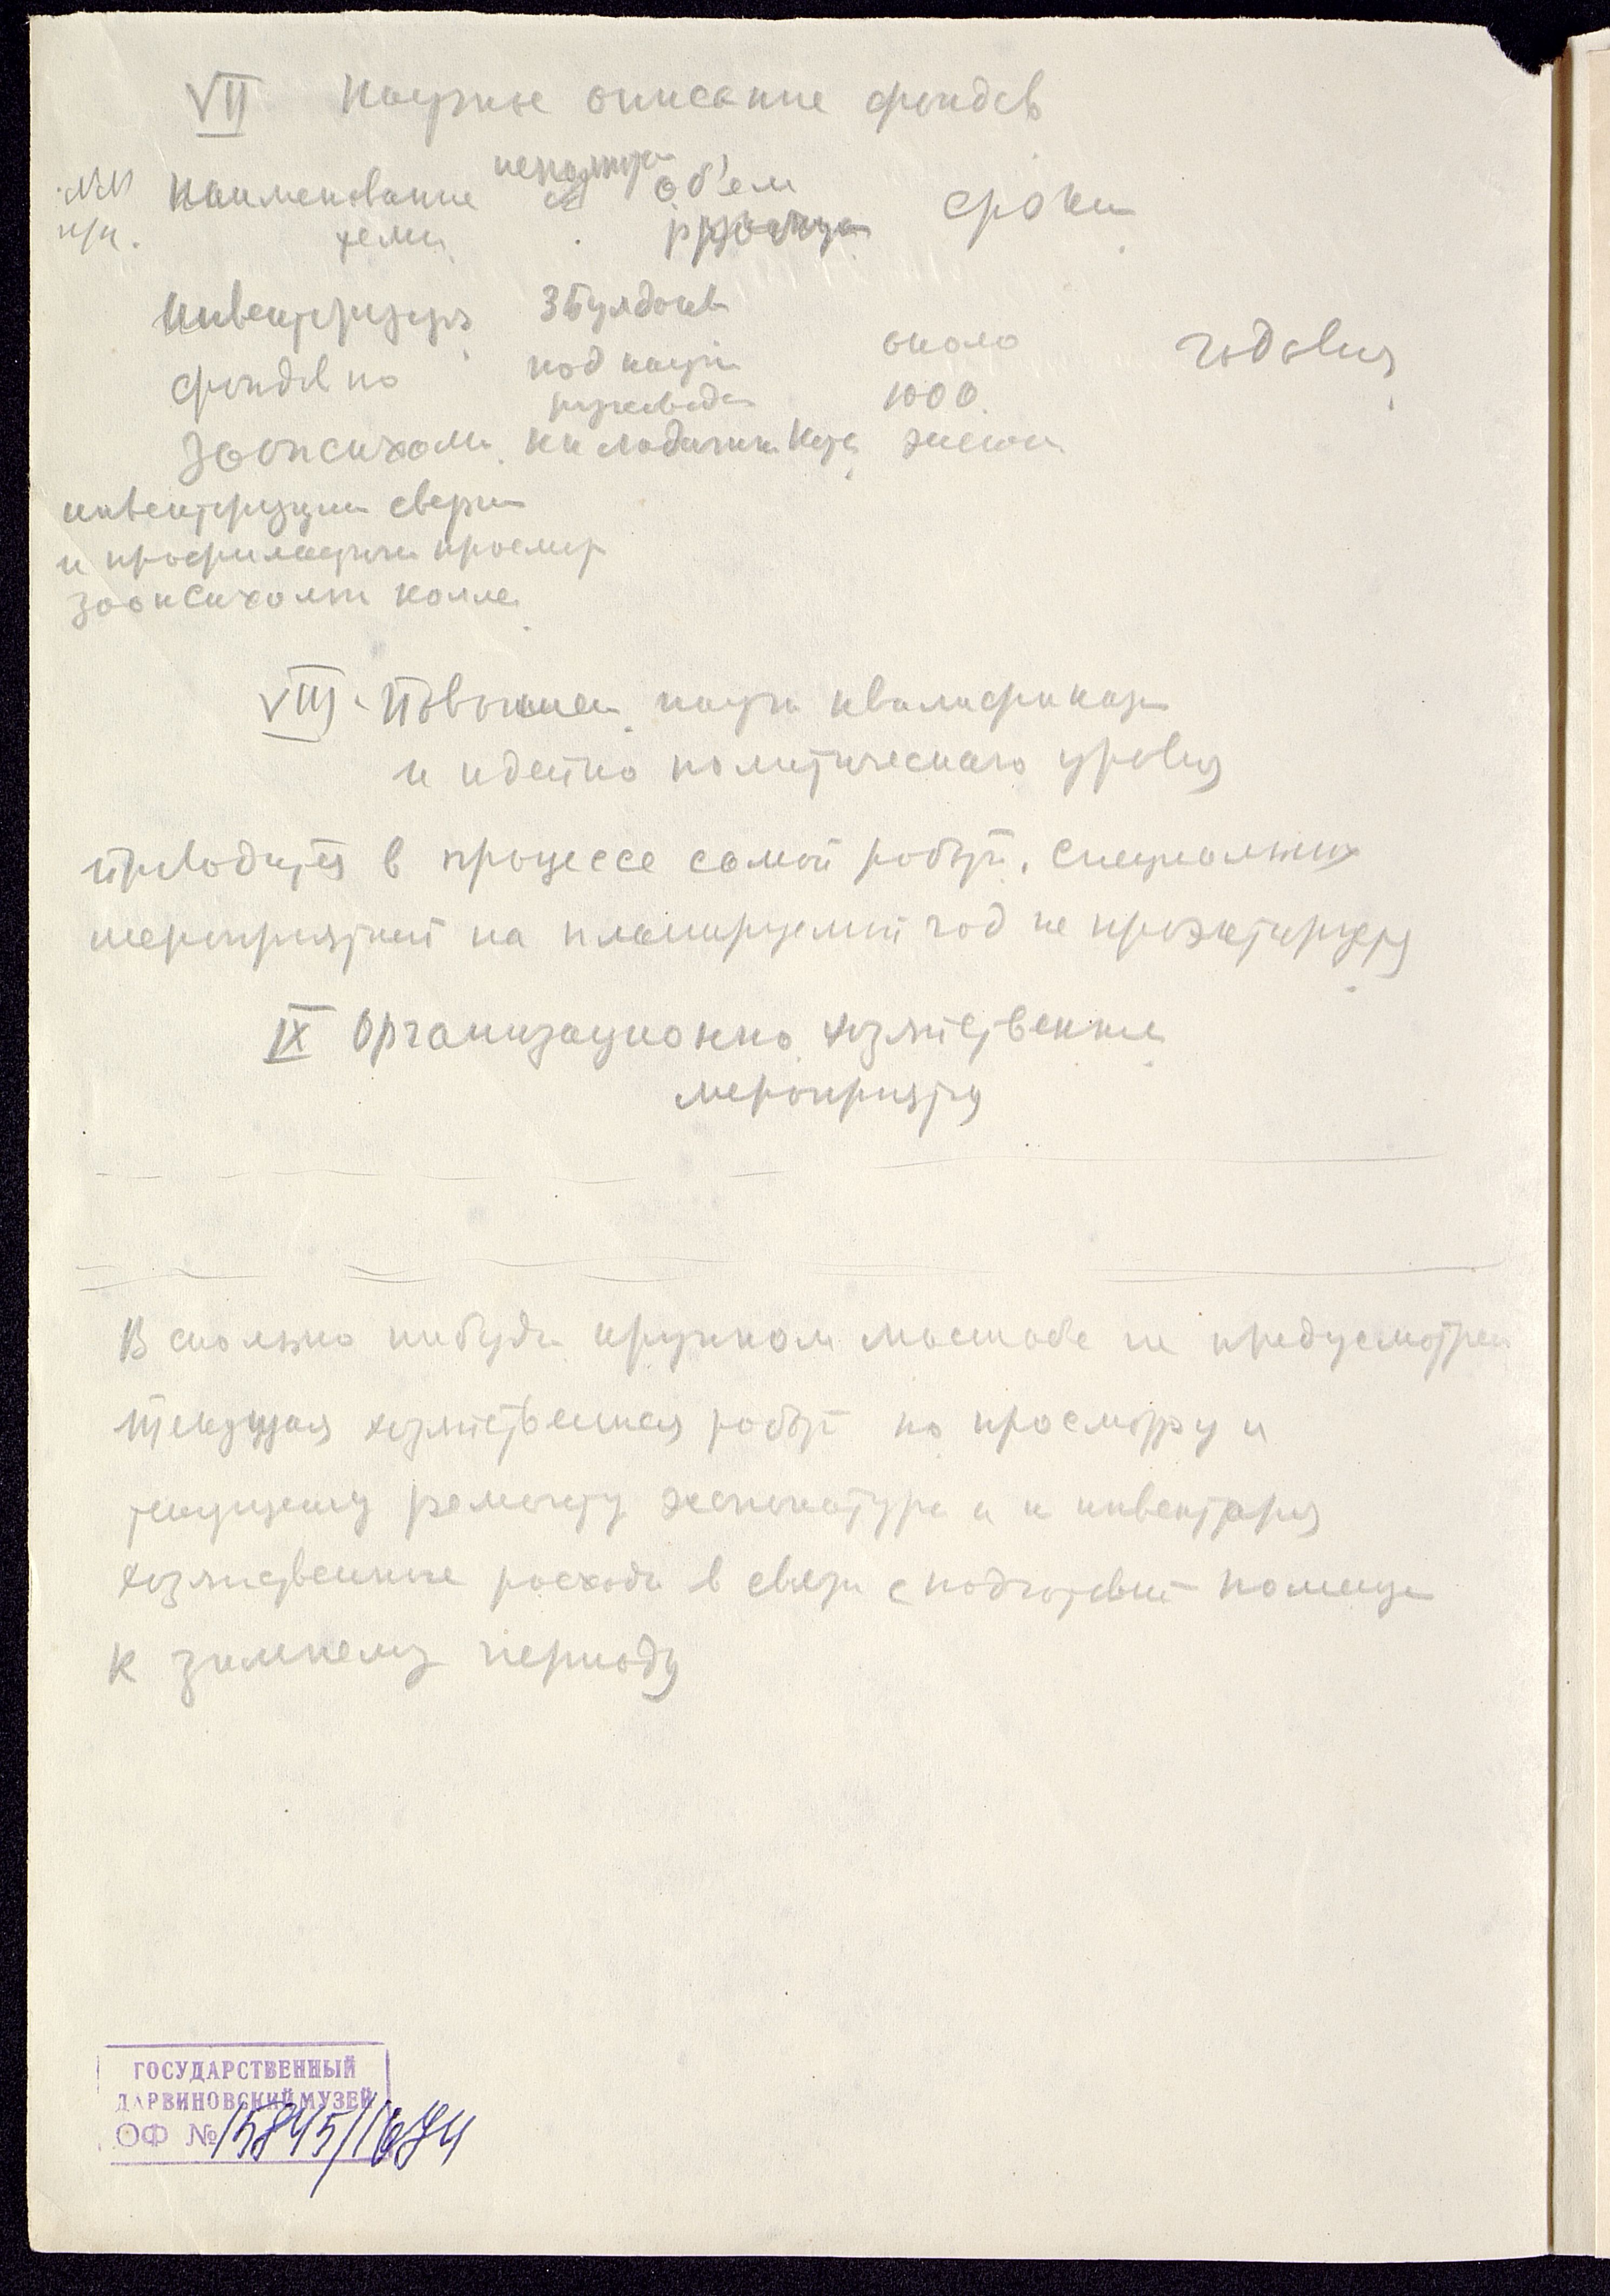 VII Научное описание фондов
№№ Наименование исполнит объем сроки
п/п. темы
Инвентаризац З Булдаков
фондов по под научн около годовая
руковод 1000
зоопсихоли Н Н Ладыгин Котс экспон
инвентаризации сверки
и профилактич просмотр
зоопсихолог колле
VIII. Повышен научн квалификац
и идейно политического уровня
Проводится в процессе самой работы. Специальных
мероприятий на планируемый год не проэктируется
IX Организационно хозяйственные
мероприятия
В сколько нибудь крупном масштабе не предусмотрен
Текущая хозяйственная работ по просмотру и
текущему ремонту экспонатуры и и инвентаря
хозяйственные расходы в связи с подготовкой помещ
к зимнему периоду
ГОСУДАРСТВЕННЫЙ
ДАРВИНОВСКИЙ МУЗЕЙ
ОФ № 15845/1694